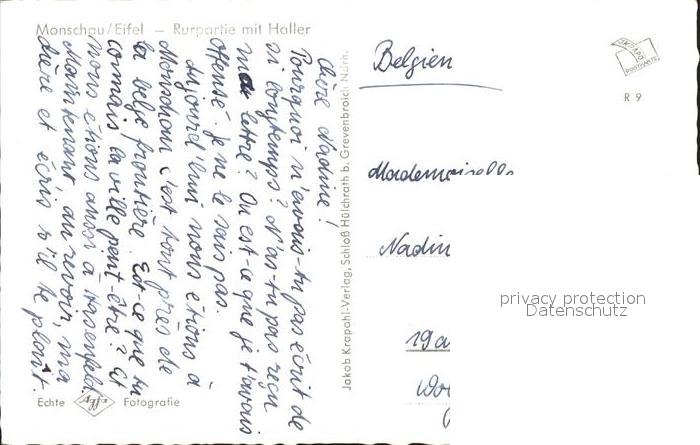 Monschau/Eifel — Rurpartie mit Haller
Chère Nadine!
Pourquoi n'avais-tu pas écrit de
si longtemps? N'as-tu pas reçu
ma lettre? Ou est-ce que je t'avais
offensé. Je ne le sais pas.
Aujourd'hui nous étions à
Monschau c'est tout près de
la belge frontière. Est-ce que tu
connais la ville peut-être? Et
nous étions aussi à Hasenfeld.
Maintenant au revoir, ma
chère et écris s'il te plaît.
Echte Agfa Fotografie
Jakob Krapohl-Verlag, Schloß Hülchrath b. Grevenbroich Nürn.
KRAPO
POSTKARTE
R 9
Belgien
Mademoiselle
Nadin
19a
privacy protection
Datenschutz